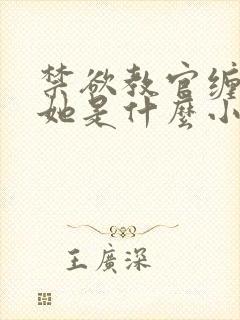 禁欲教官缠
她是什麼小
王廣深